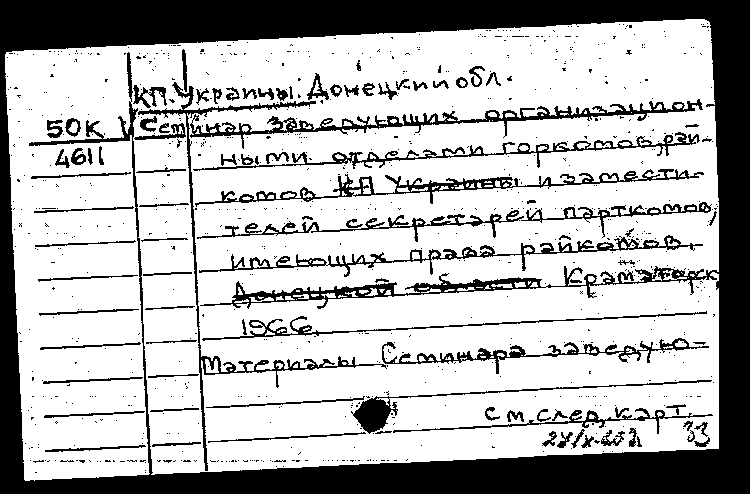 КП. Украины. Донецкий обл.
50К V Семинар заведующих организацион-
4611 ными отделами горкомов, рай-
комов КП Украины и замести-
телей секретарей парткомов,
имеющих права райкомов.
Донецкой области. Краматорск,
1966.
Материалы Семинара заведую-
см. след. карт.
33